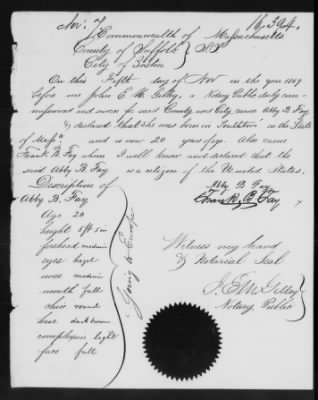 Nov. 7
16,394.
Commonwealth of Massachusetts
County of Suffolk } SS
City of Boston
On this Fifth day of Nov in the year 1859
before me John E. M. Gilley, a Notary Public duly com-
missioned and sworn for said County and City, came Abby B. Fay
& declared that she was born in in the State
of Massts and is now 20 years of age. Also came
Frank B. Fay whom I well know and declared that the
said Abby B. Fay is a citizen of the United States.
Abby B Fay
Frank B. Fay
Description of
Abby B. Fay
Age 20
height 5ft 5in
forehead medium
eyes hazel
nose medium
mouth full
chin round
hair dark brown
complexion light
face full
Going to Europe
Witness my hand
& Notarial Seal
J. E. M. Gilley
Notary Public